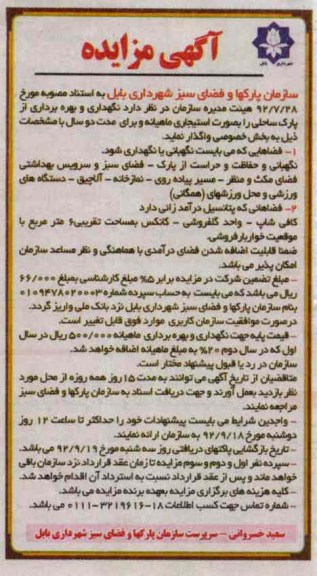 آگهی مزایده
شهرداری بابل
سازمان پارکها و فضای سبز شهرداری بابل به استناد مصوبه مورخ
۹۲/۷/۲۸ هیئت مدیره سازمان در نظر دارد نگهداری و بهره برداری از
پارک ساحلی را بصورت استیجاری ماهیانه و برای مدت دو سال با مشخصات
ذیل به بخش خصوصی واگذار نماید.
۱- فضاهایی که می بایست نگهبانی یا نگهداری شود.
نگهبانی و حفاظت و حراست از پارک - فضای سبز و سرویس بهداشتی
فضای مکث و منظر - مسیر پیاده روی - نمازخانه - آلاچیق - دستگاه های
ورزشی و محل ورزشهای (همگانی)
۲- فضاهائی که پتانسیل درآمد زائی دارد
کافی شاپ - واحد گلفروشی - کانکس بمساحت تقریبی ۶ متر مربع با
موقعیت خواربارفروشی.
ضمنا قابلیت اضافه شدن فضای درآمدی با هماهنگی و نظر مساعد سازمان
امکان پذیر می باشد.
- مبلغ تضمین شرکت در مزایده برابر ۵% مبلغ کارشناسی بمبلغ ۶۶/۰۰۰
ریال می باشد که می بایست به حساب سپرده شماره ۰۱۰۹۴۷۸۰۲۰۰۰۳
بنام سازمان پارکها و فضای سبز شهرداری بابل نزد بانک ملی واریز گردد.
درصورت موافقیت سازمان کاربری موارد فوق قابل تغییر است.
- قیمت پایه جهت نگهداری و بهره برداری ماهیانه ۵۰۰/۰۰۰ ریال در سال
اول که در سال دوم ۲۰% به مبلغ ماهیانه اضافه خواهد شد.
سازمان در رد یا قبول پیشنهاد مختار است.
متقاضیان از تاریخ آگهی می توانند به مدت ۱۵ روز همه روزه از محل مورد
نظر بازدید بعمل آورند و جهت دریافت اسناد به سازمان پارکها و فضای سبز
مراجعه نمایند.
- واجدین شرایط می بایست پیشنهادات خود را حداکثر تا ساعت ۱۲ روز
دوشنبه مورخ ۹۲/۹/۱۸ به سازمان ارائه نمایند.
- تاریخ بازگشایی پاکتهای دریافتی روز سه شنبه مورخ ۹۲/۹/۱۹ می باشد.
- سپرده نفر اول و دوم و سوم مزایده تا زمان عقد قرارداد نزد سازمان باقی
خواهد ماند و پس از عقد قرارداد نسبت به استرداد آن اقدام خواهد شد.
- کلیه هزینه های برگزاری مزایده بعهده برنده مزایده می باشد.
- شماره تماس جهت کسب اطلاعات ۱۸-۳۲۱۹۶۱۶-۰۱۱۱ می باشد.
سعید خسروانی - سرپرست سازمان پارکها و فضای سبز شهرداری بابل